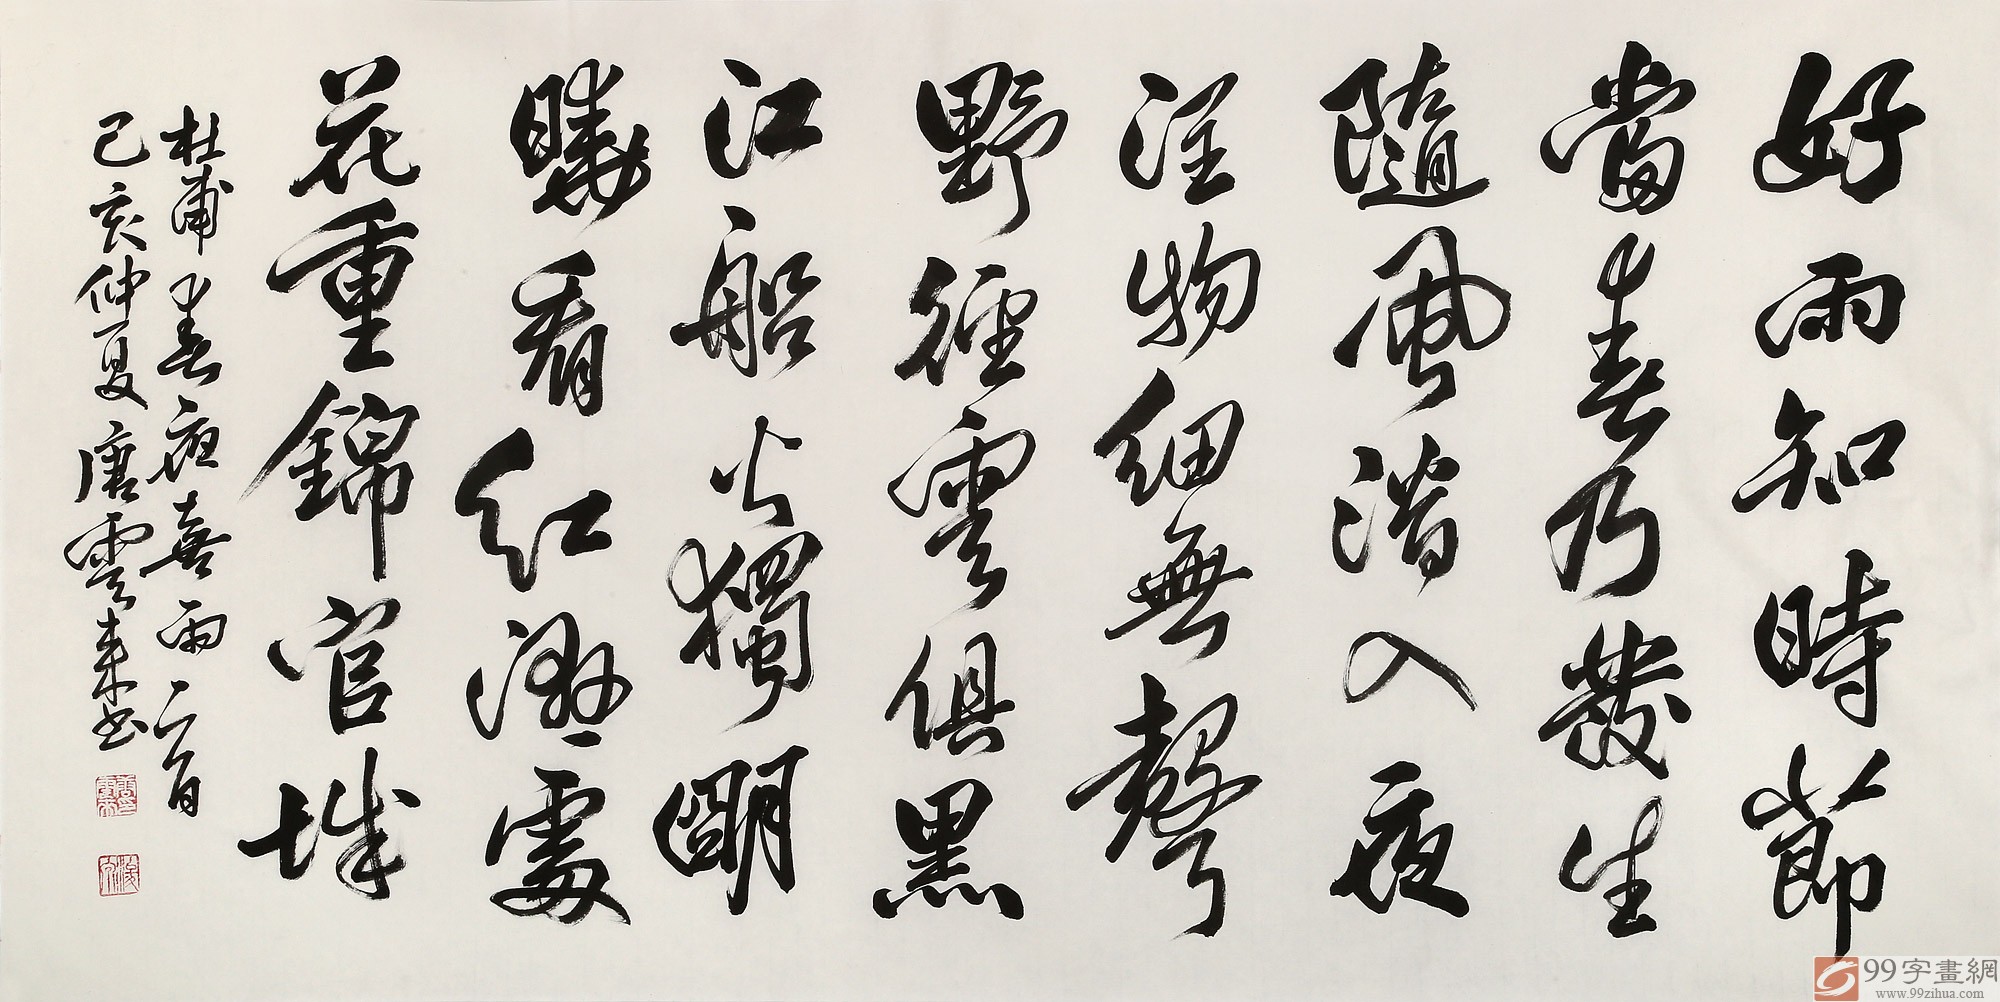 好雨知時節
當春乃發生
隨風潛入夜
潤物細無聲
野徑雲俱黑
江船火獨明
曉看紅濕處
花重錦官城
杜甫春夜喜雨一首
己亥仲夏唐雲來書
99字畫網
www.99zihua.com